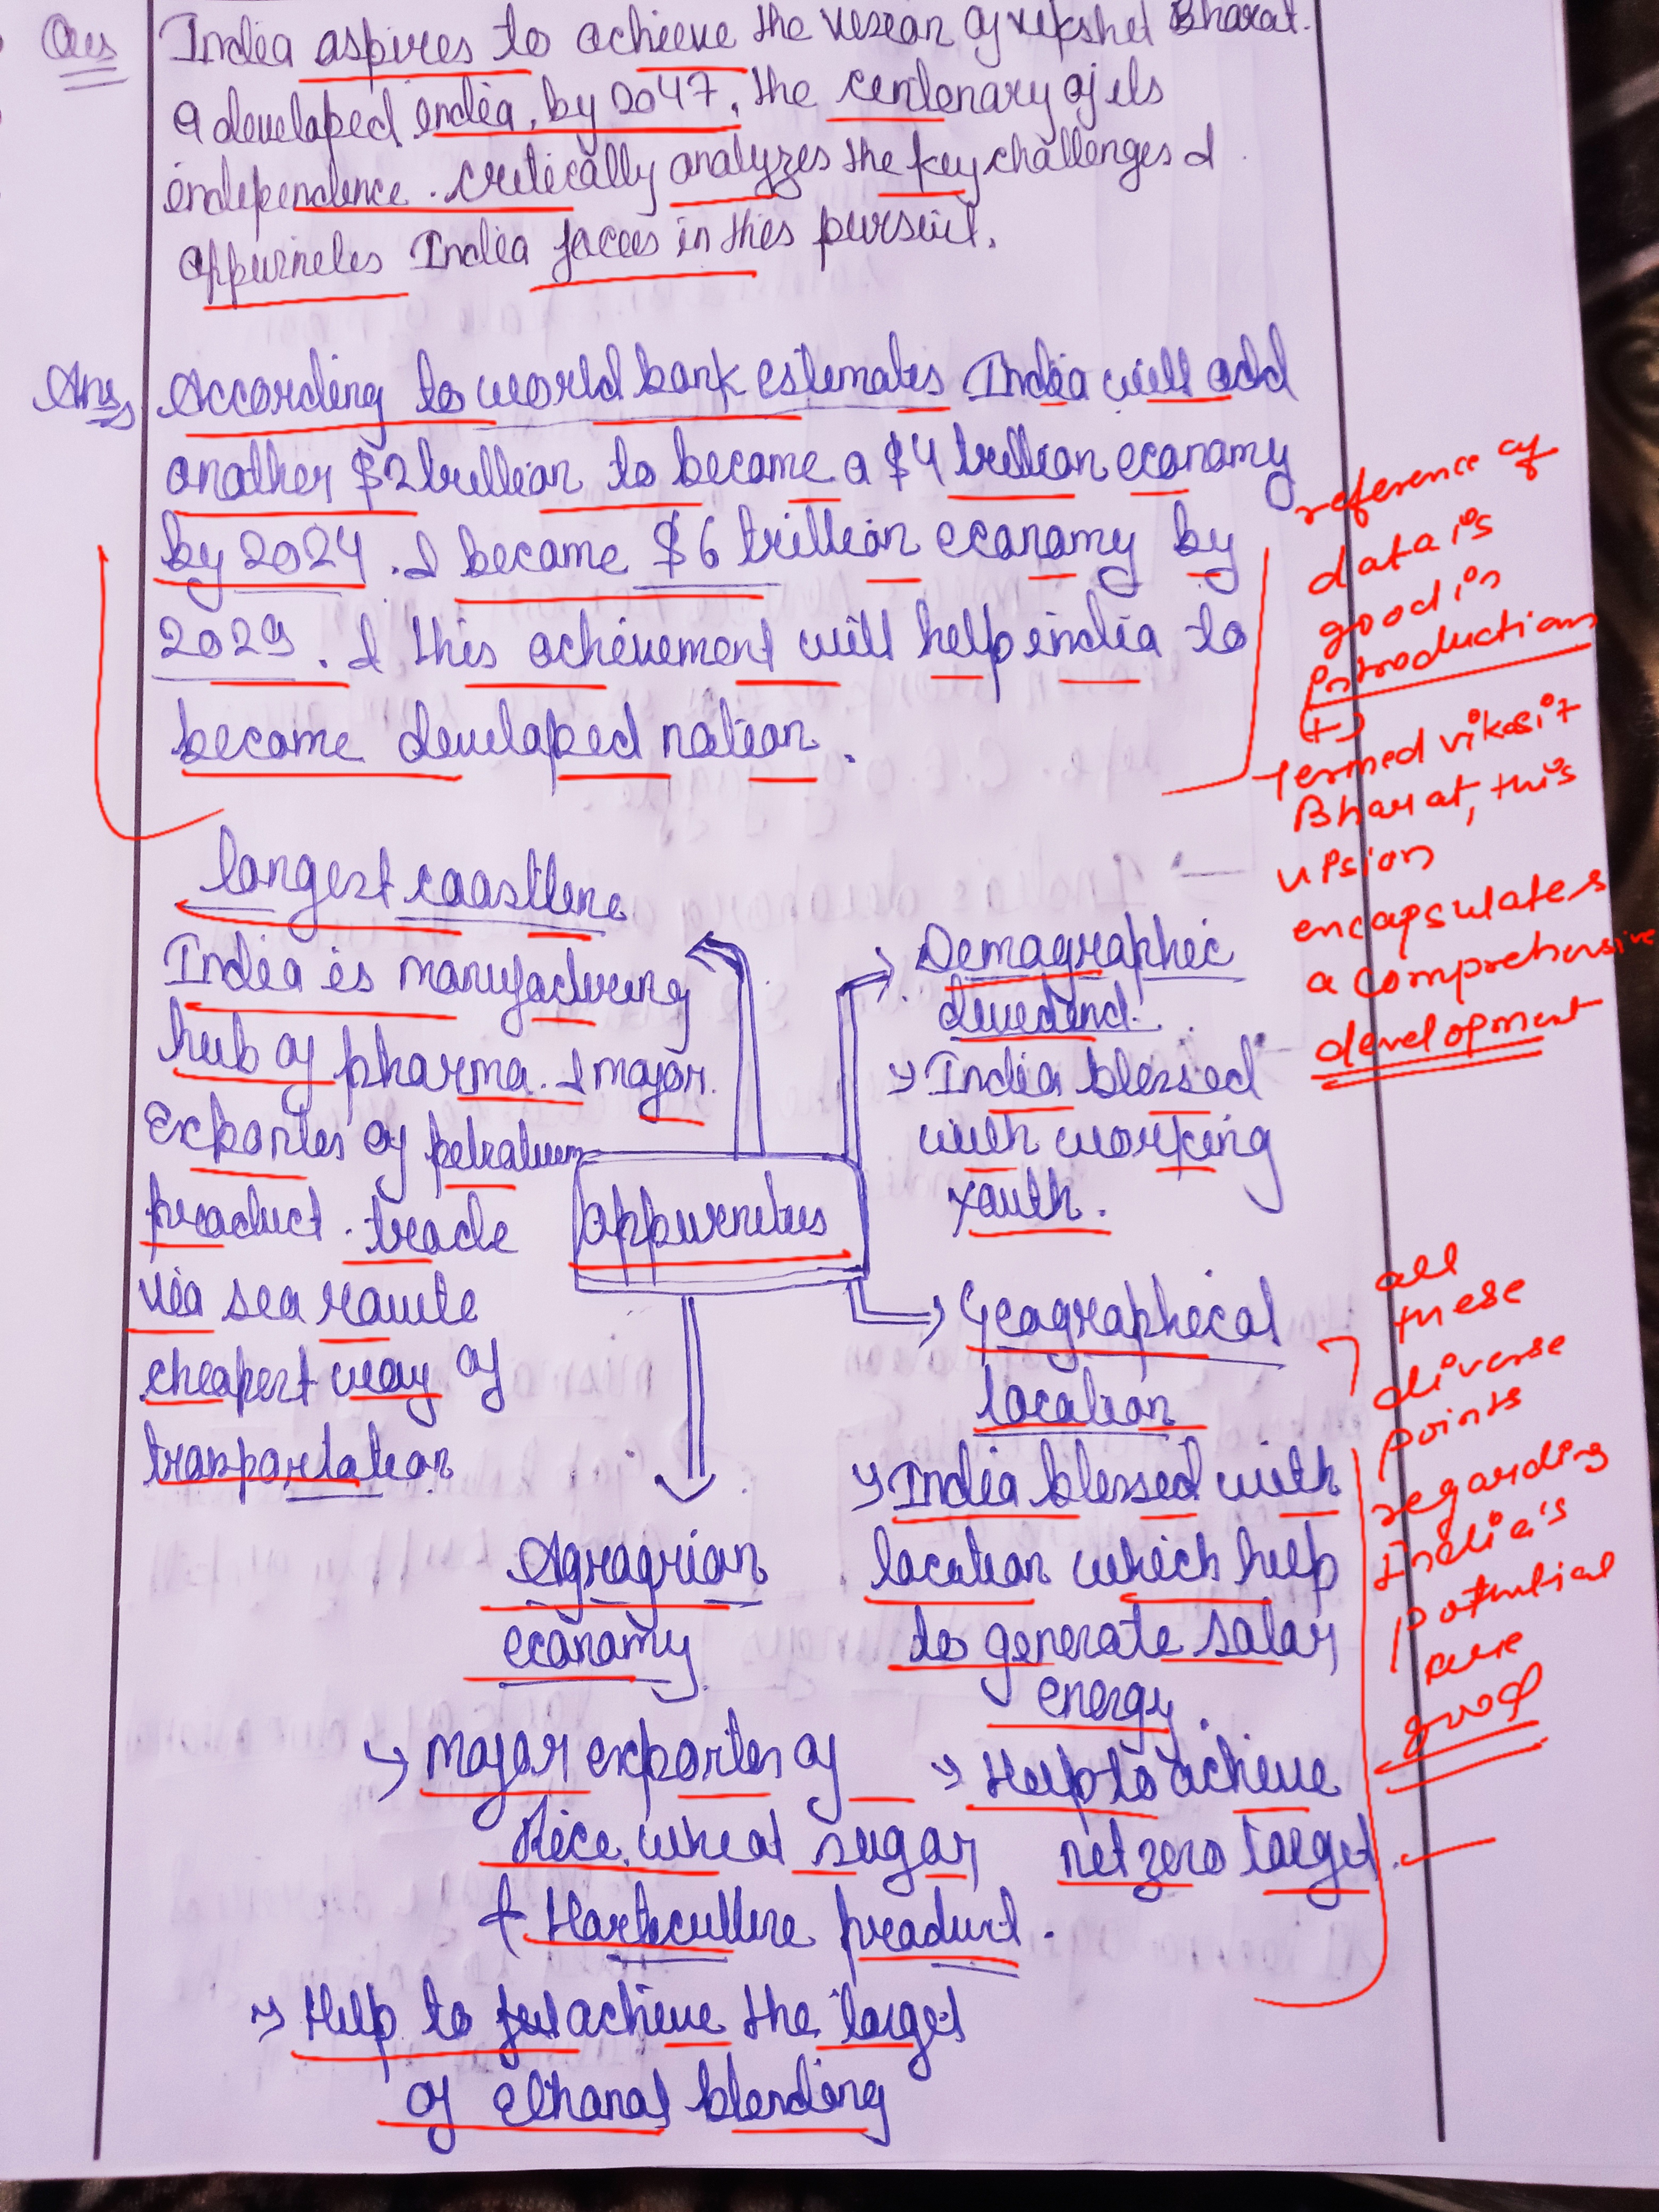 Ques
India aspires to achieve the vision of vikshit Bharat.
a developed india, by 2047, the centenary of its
independence. critically analyzes the key challenges &
oppurneties India faces in this pursuit.
Ans
According to world bank estimates India will add
another $2 trillion to became a $4 trillion economy
by 2024. & became $6 trillion economy by
2029. & this achievement will help india to
became developed nation.
reference of
data is
good in
Introductions
(+)
termed vikasit
Bharat, this
vision
encapsulates
a comprehensive
development
largest coastline
India is manufacturing
hub of pharma. & major
Exporter of petroleum
product. trade
via sea route
cheapest way of
transportation
oppurneties
Demographic
dividend.
→ India blessed
with working
youth.
→ Geographical
location
→ India blessed with
location which help
to generate solar
energy.
→ Help to achieve
net zero target.
all
these
diverse
points
regarding
India's
potential
are
good
Agragrian
economy.
→ Major exporter of
Rice, wheat sugar,
+ Horticulture product.
→ Help to achieve the target
of ethanol blending